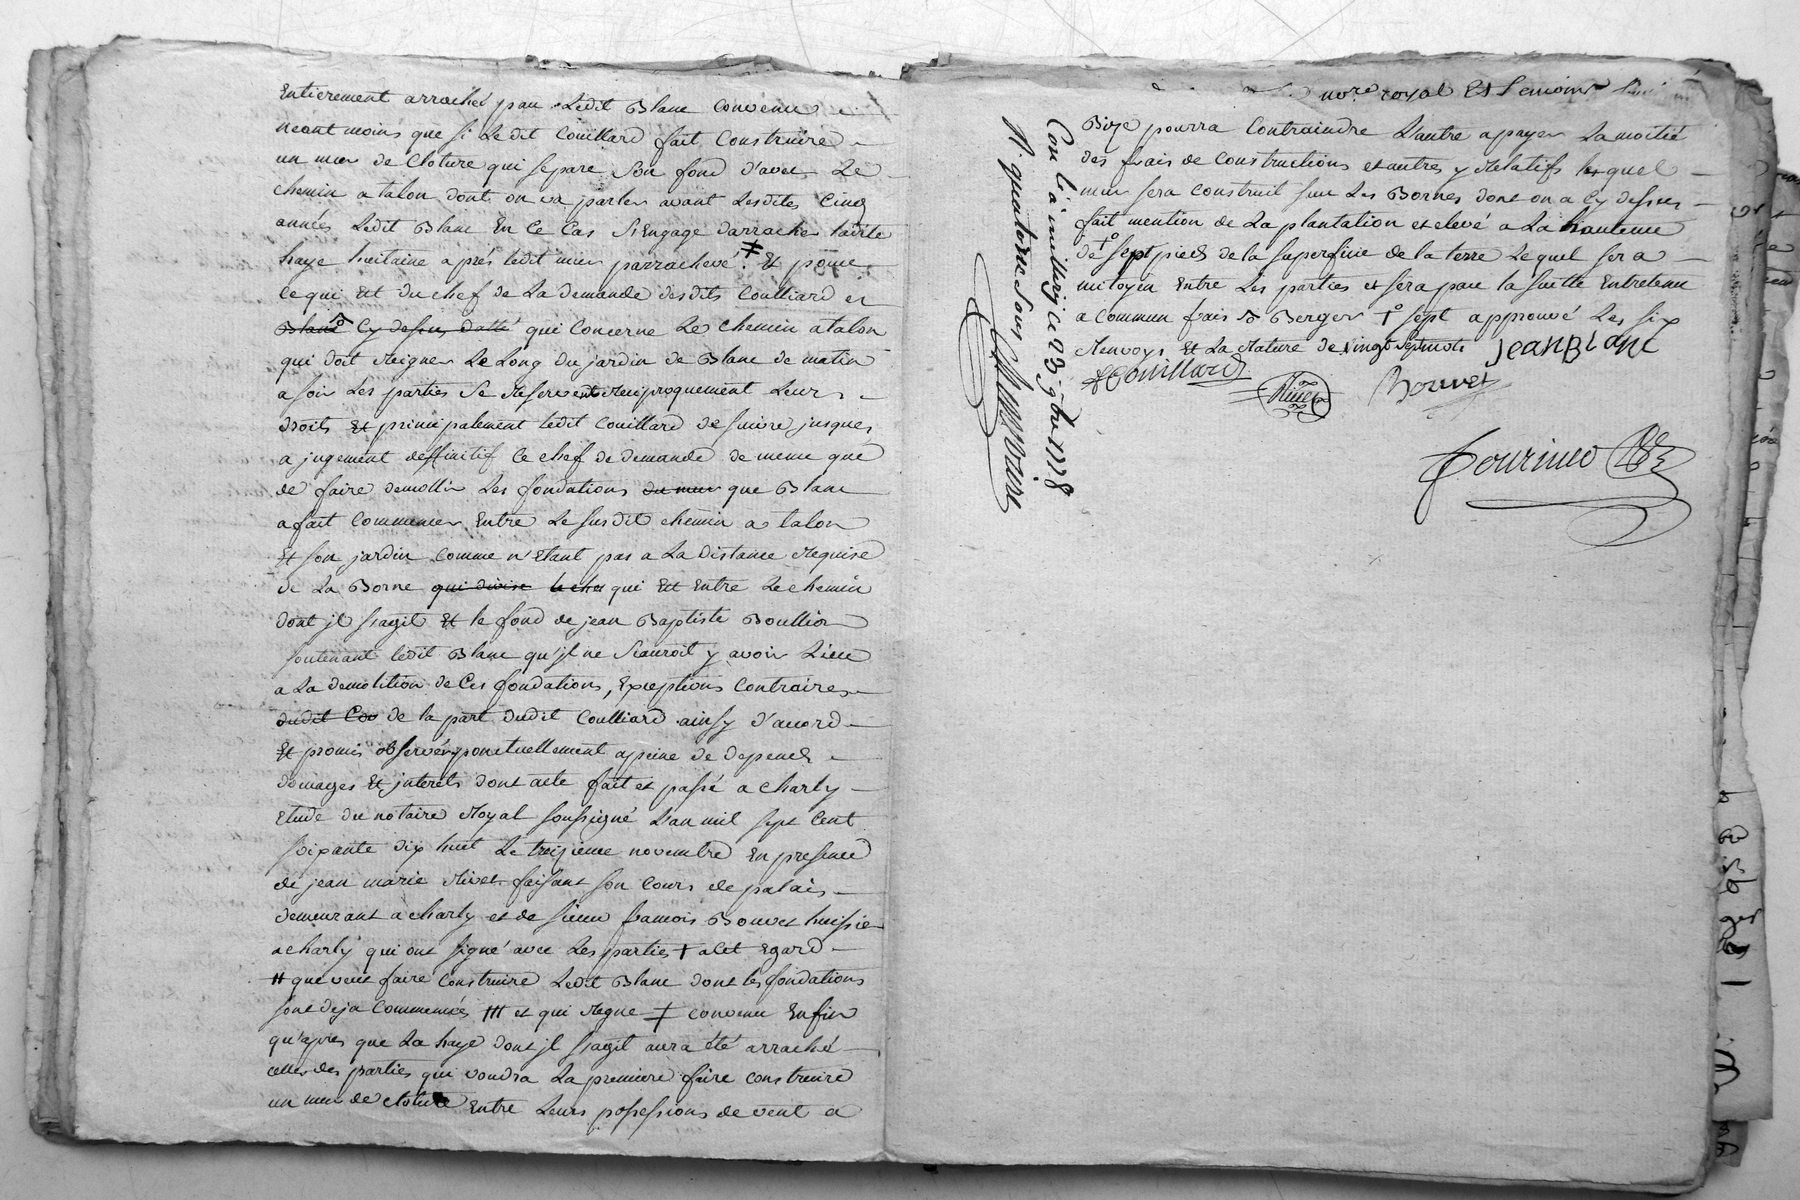 Entierement arraché par Ledit Blanc convenu
neant moins que si Ledit Couillard fait Construire
un mur de Cloture qui separe Son fond d'avec Le
chemin a talon dont on va parler avant Lesdites Cinq
années Ledit Blanc En Ce Cas S'Engage darracher ladite
haye huitaine après ledit mur parrachevé ‡. Et pour
Ce qui Est du chef de La demande desdits Coulliard et
Blanc Cy dessus datté qui Concerne Le chemin a talon
qui doit Regner Le Long du jardin de Blanc de matin
a soir Les parties Se Reservent Reciproquement Leurs
droits Et principalement ledit Couillard de suivre jusques
a jugement deffinitif Ce chef de demande de meme que
de faire demollir Les fondations du mur que Blanc
a fait Commencer Entre Le susdit chemin a talon
Et son jardin Comme n'Etant pas a La distance Requise
de La Borne qui divise le che qui Est Entre Le chemin
dont jl s'agit Et le fond de jean Baptiste Boullion
soutenant ledit Blanc qu'jl ne Scauroit y avoir Lieu
a La demolition de Ces fondations, Exceptions Contraires
dudit Cou de la part dudit Coulliard ainsy d'accord
Et promis observér ponctuellement a peine de depends
domages Et jnterets dont acte fait et passé a charly
Etude du notaire Royal soussigné L'an mil sept Cent
soixante dix huit Le troisieme novembre En presence
de jean marie Rivet faisant son Cours de palais
demeurant a charly et de sieur francois Bouvet huissier
a charly qui ont signé avec Les parties † a Cet Egard
++ que veut faire Construire Ledit Blanc dont les fondations
sont deja Commencés +++ et qui Regne ‡ convenu Enfin
qu'apres que La haye dont jl s'agit aura été arraché
celle des parties qui voudra La premiere faire construire
un mur de cloture Entre Leurs possessions de vent a
no.re royal Et temoins
Bize pourra Contraindre L'autre a payer La moitié
des frais de Constructions et autres y Relatifs lequel
mur sera construit sur Les Bornes dont on a Cy dessus
fait mention de La plantation et elevé a La hauteur
de †° sept pieds de la superficie de la terre Lequel sera
mitoyen Entre Les parties et sera par la suitte Entretenu
a Commun frais Berger †° sept approuvé Les six
Renvoys Et La Rature de vingt sept mots jean Blanc
Couillard
Rivet
Bouvet
Con.lé a millery ce 13 9bre 1778
R. quatorze sous